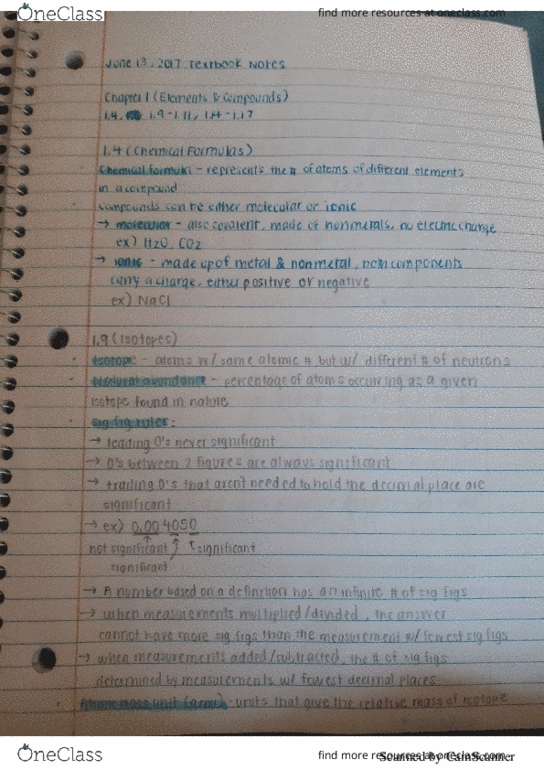 OneClass
find more resources at oneclass.com
June 13, 2017 Textbook Notes
Chapter 1 (Elements & Compounds)
1.4, 1.9-1.11, 1.14-1.17
1.4 (Chemical Formulas)
· Chemical formula - represents the # of atoms of different elements
in a compound
· compounds can be either molecular or ionic
→ molecular - also covalent, made of nonmetals, no electric charge
ex) H2O, CO2
→ ionic - made up of metal & nonmetal, both components
carry a charge, either positive or negative
ex) NaCl
1.9 (Isotopes)
· Isotope - atoms w/ same atomic # but w/ different # of neutrons
· Natural abundance - percentage of atoms occurring as a given
isotope found in nature
· sig fig rules:
→ leading 0's never significant
→ 0's between 2 figures are always significant
→ trailing 0's that aren't needed to hold the decimal place are
significant
→ ex) 0.004050
not significant significant
significant
→ A number based on a definition has an infinite # of sig figs
→ when measurements multiplied/divided, the answer
cannot have more sig figs than the measurement w/ fewest sig figs
→ when measurements added/subtracted, the # of sig figs
determined by measurements w/ fewest decimal places
· Atomic mass unit (amu) - units that give the relative mass of isotope
OneClass
find more resources at oneclass.com
Scanned by CamScanner